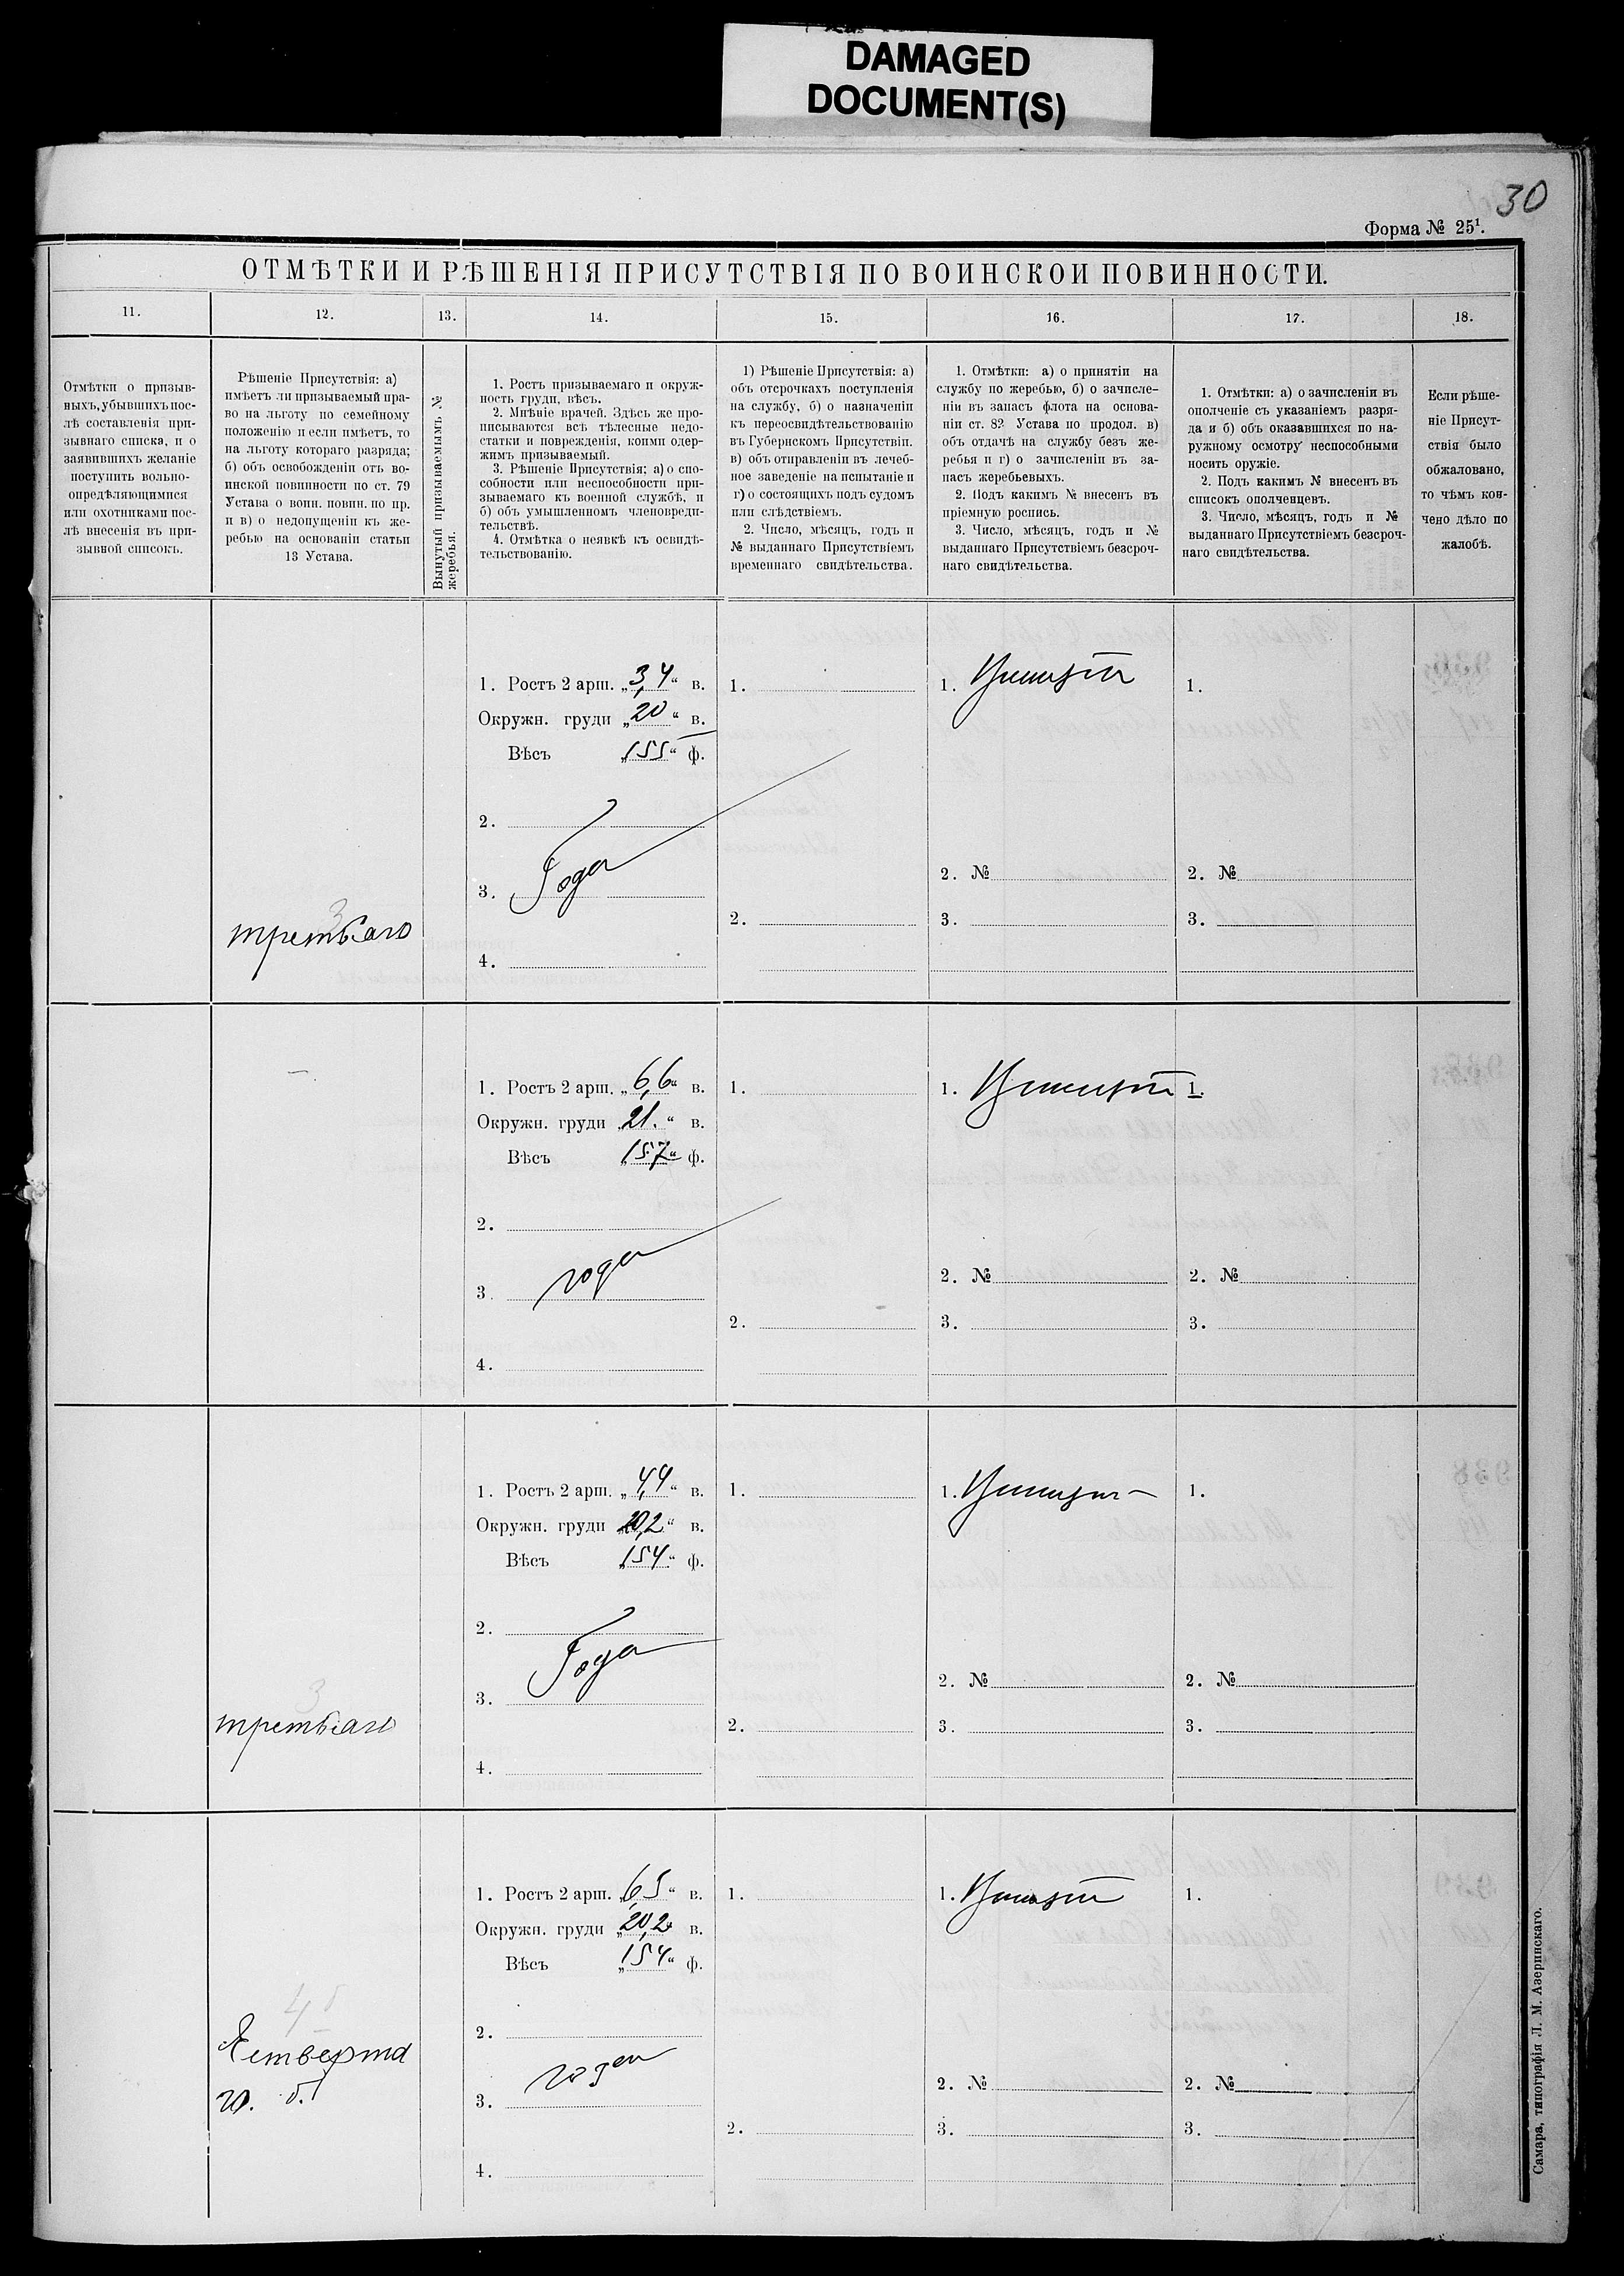 DAMAGED
DOCUMENT(S)
30
Форма № 25¹.
ОТМѢТКИ И РѢШЕНІЯ ПРИСУТСТВІЯ ПО ВОИНСКОЙ ПОВИННОСТИ.
11.
12.
13.
14.
15.
16.
17.
18.
Отмѣтки о призыв-
ныхъ, убывшихъ пос-
лѣ составленія при-
зывнаго списка, и о
заявившихъ желаніе
поступить вольно-
опредѣляющимися
или охотниками пос-
лѣ внесенія въ при-
зывной списокъ.
Рѣшеніе Присутствія: а)
имѣетъ ли призываемый пра-
во на льготу по семейному
положенію и если имѣетъ, то
на льготу котораго разряда;
б) объ освобожденіи отъ во-
инской повинности по ст. 79
Устава о воин. повин. по пр.
и в) о недопущеніи къ же-
ребью на основаніи статьи
13 Устава.
Вынутый призываемымъ №
жеребья.
1. Ростъ призываемаго и окруж-
ность груди, вѣсъ.
2. Мнѣніе врачей. Здѣсь же про-
писываются всѣ тѣлесные недо-
статки и поврежденія, коими одер-
жимъ призываемый.
3. Рѣшеніе Присутствія; а) о спо-
собности или неспособности при-
зываемаго къ военной службѣ, и
б) объ умышленномъ членовреди-
тельствѣ.
4. Отмѣтка о неявкѣ къ освидѣ-
тельствованію.
1) Рѣшеніе Присутствія: а)
объ отсрочкахъ поступленія
на службу, б) о назначеніи
къ переосвидѣтельствованію
въ Губернскомъ Присутствіи.
в) объ отправленіи въ лечеб-
ное заведеніе на испытаніе и
г) о состоящихъ подъ судомъ
или слѣдствіемъ.
2. Число, мѣсяцъ, годъ и
№ выданнаго Присутствіемъ
временнаго свидѣтельства.
1. Отмѣтки: а) о принятіи на
службу по жеребью, б) о зачисле-
ніи въ запасъ флота на основа-
ніи ст. 82 Устава по продол. в)
объ отдачѣ на службу безъ же-
ребья и г) о зачисленіи въ за-
пасъ жеребьевыхъ.
2. Подъ какимъ № внесенъ въ
пріемную роспись.
3. Число, мѣсяцъ, годъ и №
выданнаго Присутствіемъ безсроч-
наго свидѣтельства.
1. Отмѣтки: а) о зачисленіи въ
ополченіе съ указаніемъ разря-
да и б) объ оказавшихся по на-
ружному осмотру неспособными
носить оружіе.
2. Подъ какимъ № внесенъ въ
списокъ ополченцевъ.
3. Число, мѣсяцъ, годъ и №
выданнаго Присутствіемъ безсроч-
наго свидѣтельства.
Если рѣше-
ніе Присут-
ствія было
обжаловано,
то чѣмъ кон-
чено дѣло по
жалобѣ.
3
третьяго
1. Ростъ 2 арш. „3,4“ в.
Окружн. груди „20“ в.
Вѣсъ „155“ ф.
2.
3. Годен
4.
1.
2.
1. Принятъ
2. №
3.
1.
2. №
3.
—
1. Ростъ 2 арш. „6,6“ в.
Окружн. груди „21.“ в.
Вѣсъ „157“ ф.
2.
3. годен
4.
1.
2.
1. Принятъ
2. №
3.
1.
2. №
3.
3
третьяго
1. Ростъ 2 арш. „4,4“ в.
Окружн. груди „20,2“ в.
Вѣсъ „154“ ф.
2.
3. Годен
4.
1.
2.
1. Принятъ
2. №
3.
1.
2. №
3.
4 б
Четверта
го. б.
1. Ростъ 2 арш. „6,5“ в.
Окружн. груди „20,2“ в.
Вѣсъ „154“ ф.
2.
3. годен
4.
1.
2.
1. Принятъ
2. №
3.
1.
2. №
3.
Самара, типографія Л. М. Азеринскаго.